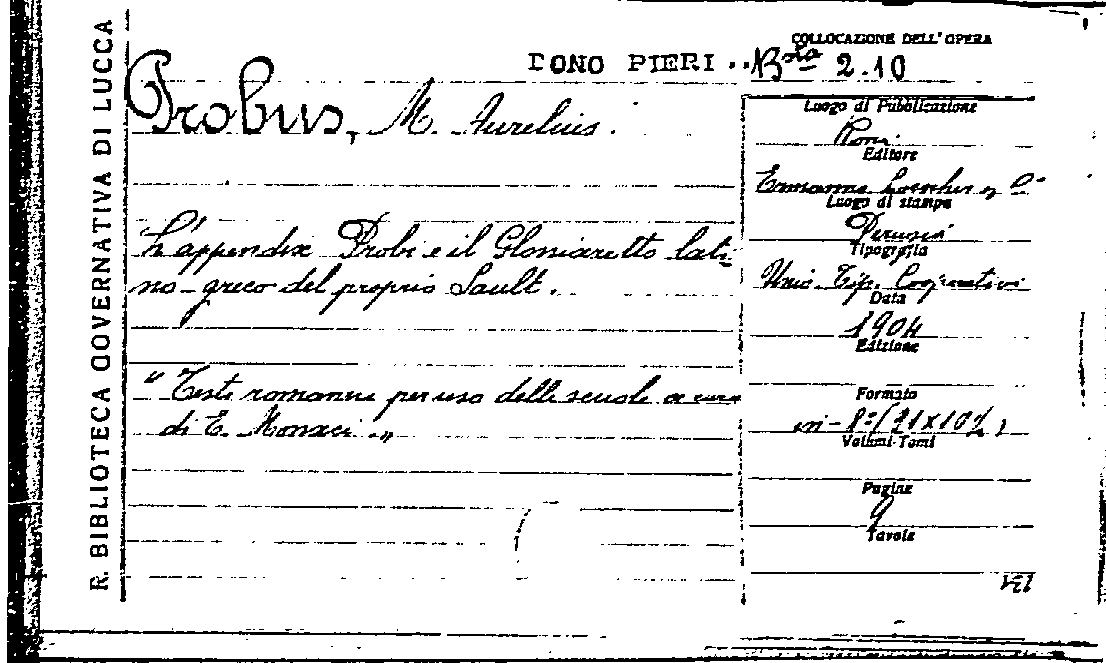 R. BIBLIOTECA GOVERNATIVA DI LUCCA
DONO PIERI
COLLOCAZIONE DELL'OPERA
2.10
Probus, M. Aurelius.
L'appendix Probi e il Glossaretto lati-
no-greco del proprio Sault.
"Testi romanzi per uso delle scuole a cura
di E. Monaci"
Luogo di Pubblicazione
Roma
Editore
Ermanno Loescher e C°
Luogo di stampa
Perugia
Tipografia
Unio. Tip. Cooperativa
Data
1904
Edizione
Formato
in-8°
Volumi-Tomi
Pagine
9
Tavole